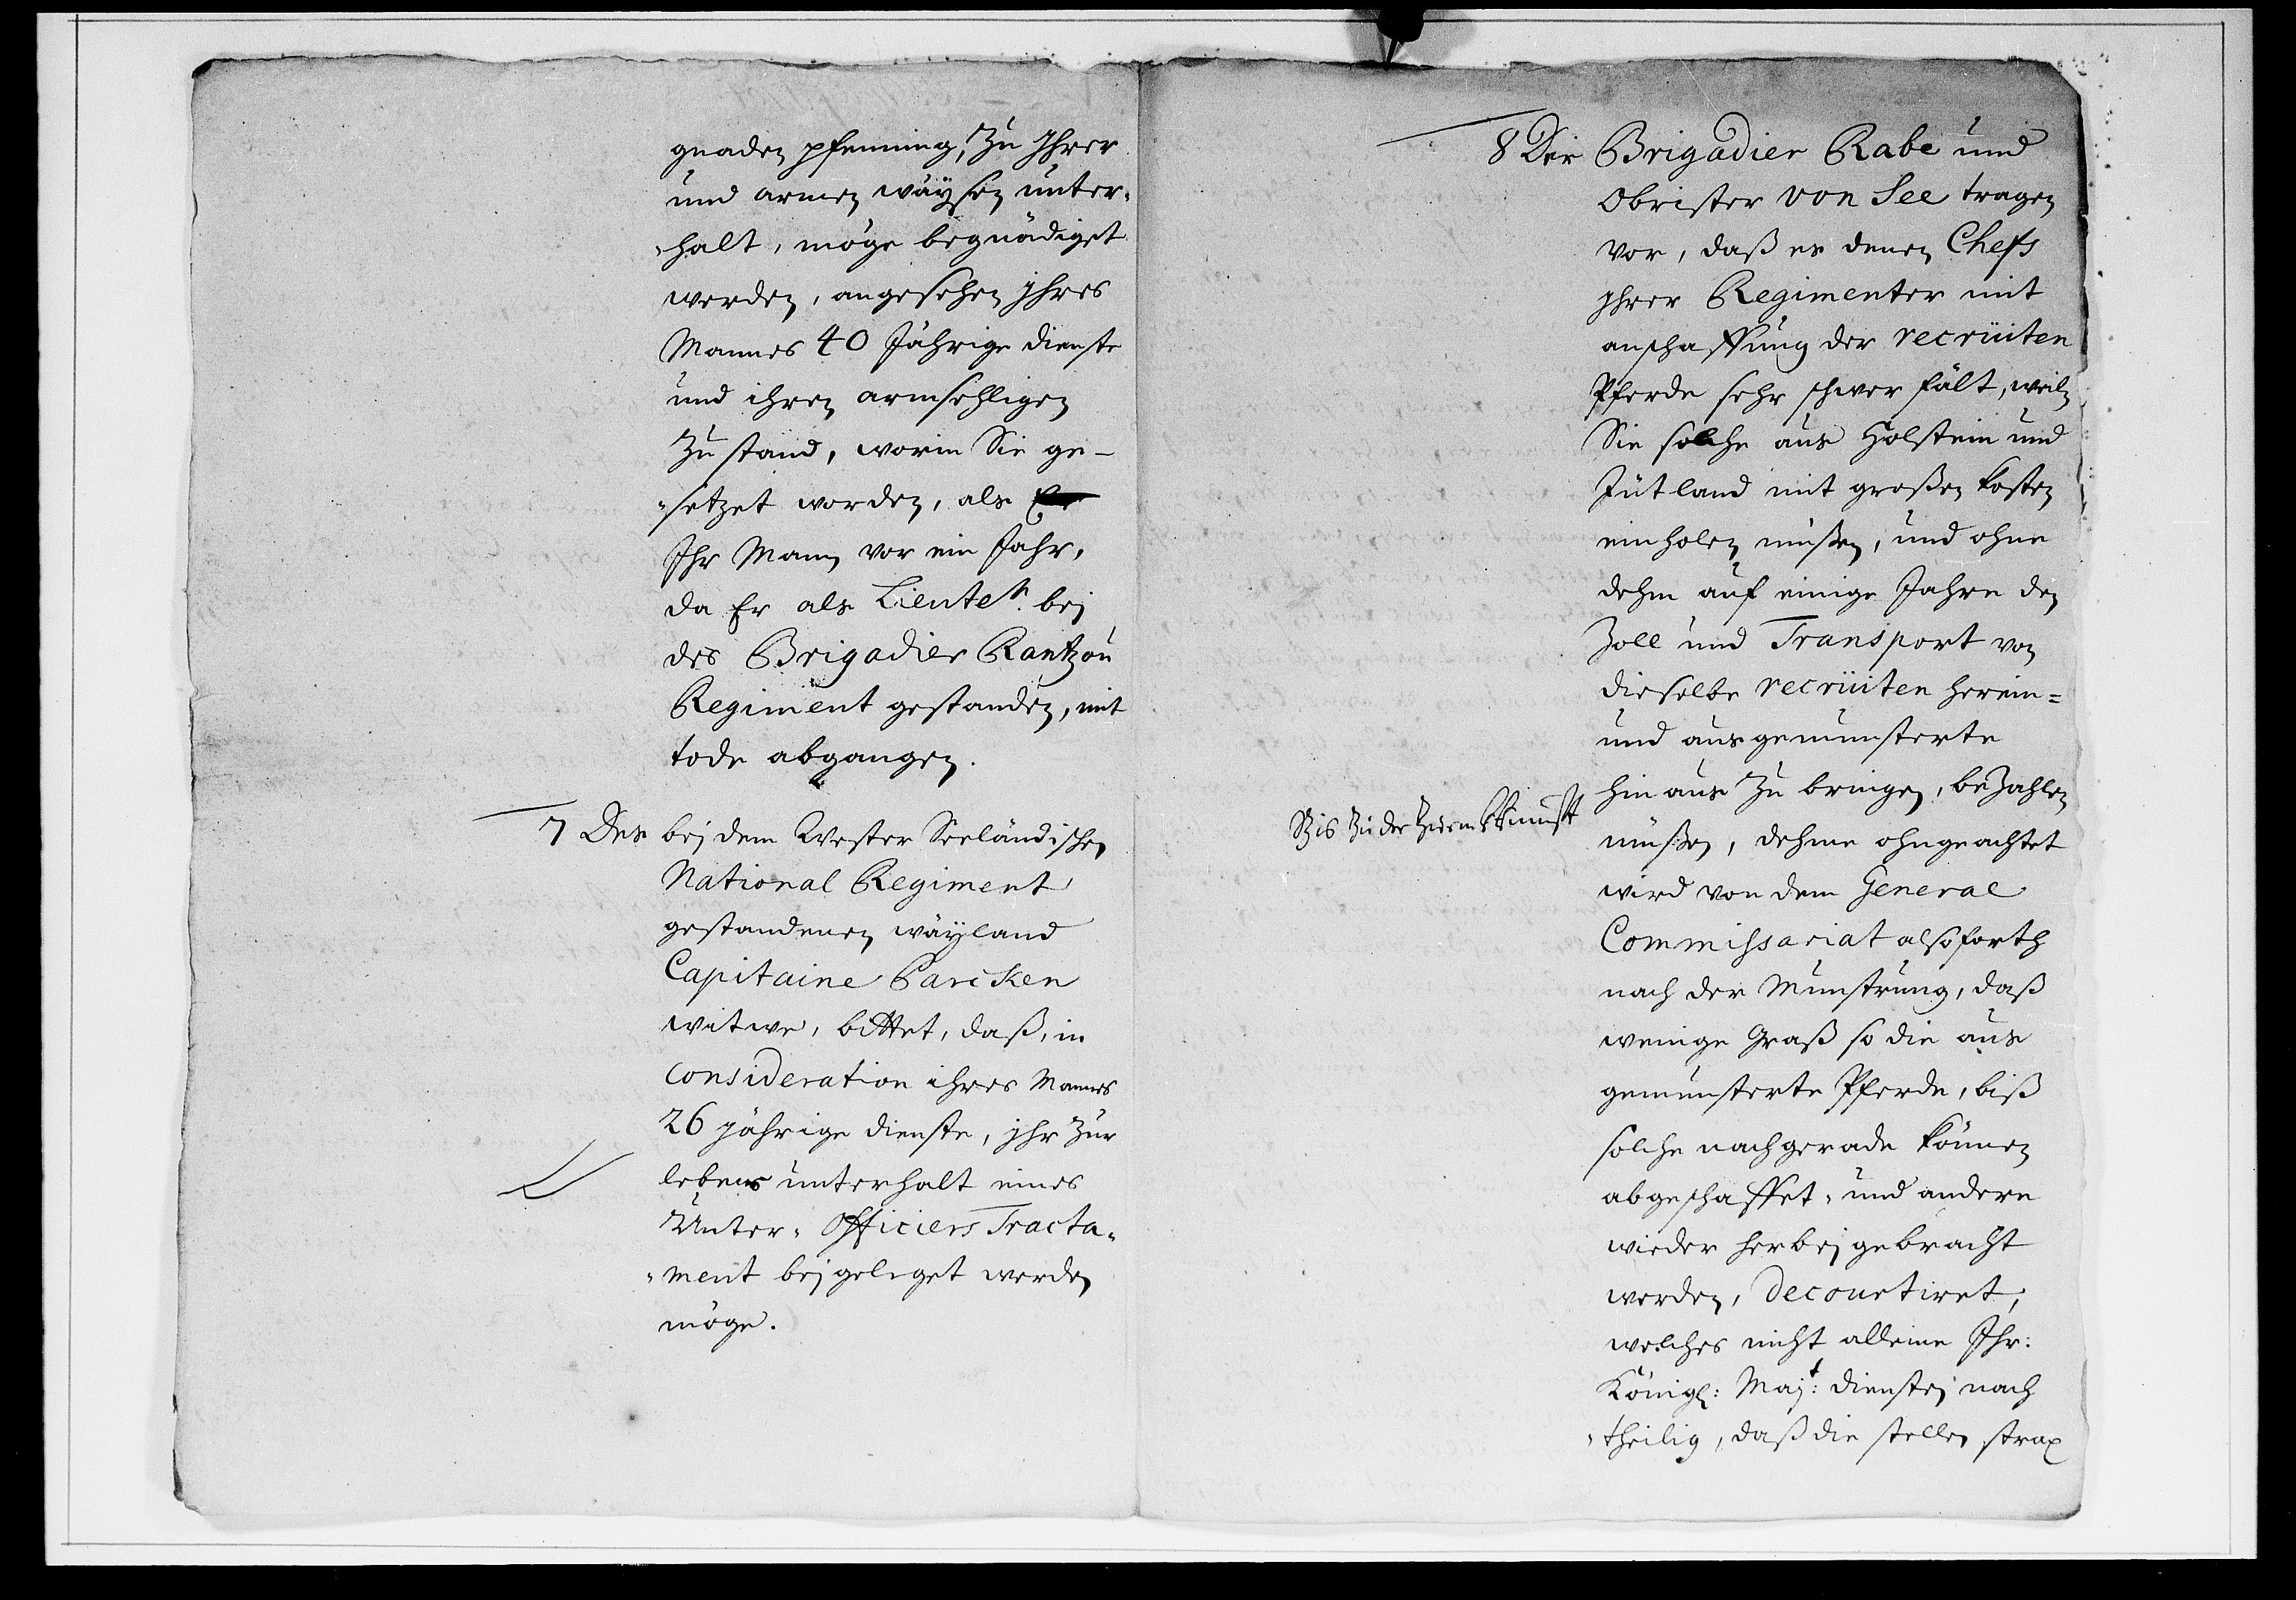 gnaden pfenning, zu Ihrer
und armen wäysen unter-
-halt, möge begnädiget
werden, angesehen ihres
Mannes 40 Jährige dienste
und ihren armsehligen
Zustand, worin Sie ge-
-setzet worden, als
Ihr Mann vor ein Jahr,
da Er als Lieutet. bej
des Brigadier Rantzau
Regiment gestanden, mit
tode abgangen.
7 Des bej dem Wester Seeländischen
National Regiment
gestandenen wäyland
Capitaine Parcken
witwe, bittet, daß, in
consideration ihres Mannes
26 jährige dienste, ihr zur
lebens unterhalt eines
Unter-Officiers Tracta-
-ment bejgeleget werden
möge.
8 Der Brigadier Rabe und
Obrister von See tragen
vor, daß es denen Chefs
ihrer Regimenter mit
anschaffung der recrüiten
Pferde sehr schwer fält, weiln
Sie solche aus Holstein und
Jütland mit großen kosten
einholen müßen, und ohne
dehm auf einige Jahre den
Zoll und Transport von
dieselbe recrüiten herein=
und ausgemunsterte
hinaus zu bringen, bezahlen
Bis zu der Zurückkunfft
müßen, dehme ohngeachtet
wird von dem General
Commissariat alsoforth
nach der Munstrung, daß
wenige Graß so die aus
gemunsterte Pferde, biß
solche nachgerade können
abgeschaffet, und andere
wieder herbej gebracht
werden, decourtiret;
welches nicht alleine Ihr:
Königl: Majt: dienste nach
-theilig, daß die stellen strax